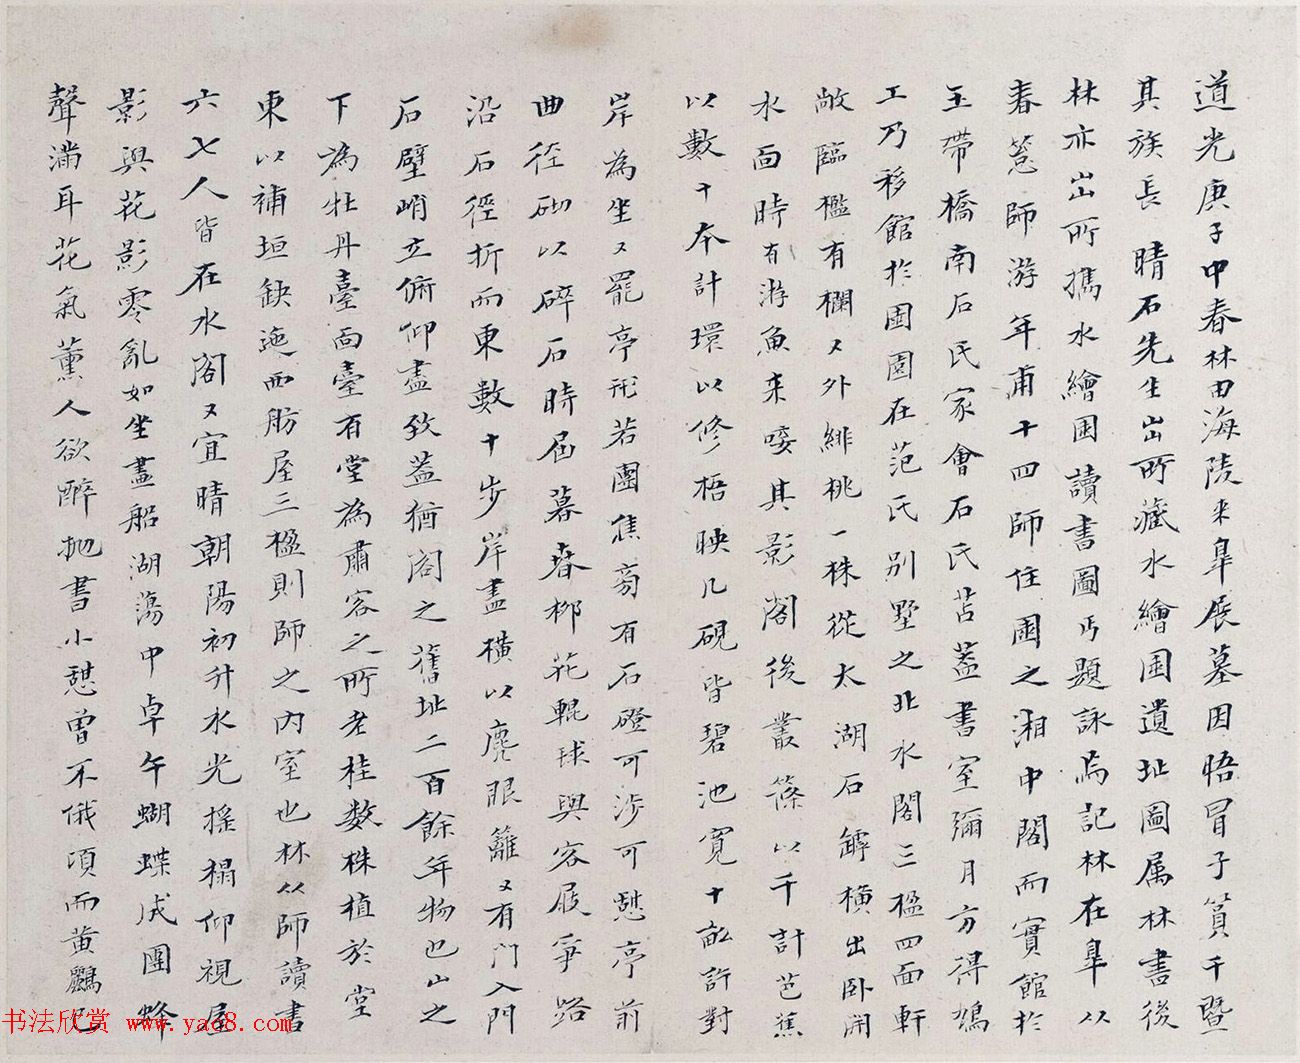 道光庚子中春林由海陵来皋展墓因晤冒子筼千暨
其族長晴石先生出所藏水繪圖遺址圖属林書後
林亦出所携水繪圖讀書圖丐題詠焉記林在皋從
春 師游年甫十四師住圖之湘中閣而實館於
玉帶橋南石氏家會石氏苫葢書室彌月方得鳩
工乃移館於園園在范氏別墅之北水閣三楹四面軒
敞臨檻有欄〻外緋桃一株從太湖石罅橫出卧開
水面時有游魚来唼其影閣後叢篠以千計芭蕉
以數十本計環以修梧映几硯皆碧池寬十畝許對
岸為坐又罷亭形若團焦旁有石磴可涉可憩亭前
曲径砌以碎石時屆暮春柳花輥球與客屐爭路
沿石徑折而東數十步岸盡橫以麂眼籬〻有門入門
石壁峭立俯仰盡致葢猶閣之舊址二百餘年物也山之
下為牡丹臺面臺有堂為肅客之所老桂数株植於堂
東以補垣缺迤西舫屋三楹則師之内室也林從師讀書
六七人皆在水閣又宜晴朝陽初升水光摇榻仰視屋
影與花影零亂如坐畫船湖蕩中卓午蝴蝶成團蜂
聲滿耳花氣薰人欲醉抛書小憩曾不俄頃而黄鸝已
书法欣赏 www.yac8.com